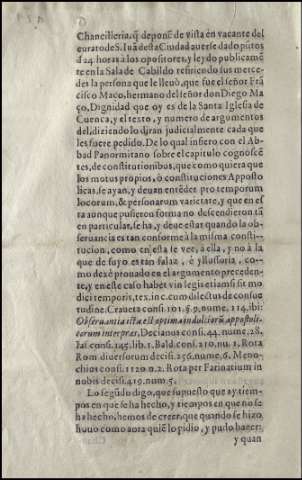 Chancilleria, q̃ deponẽ de vista en vacante del
curato de S. Iuã desta Ciudad auerse dado pũtos
d̃ 24 horas à los opositores, y leydo publicamẽ
te en la Sala de Cabildo refiriendo sus merce-
des la persona que le lleuò, que fue el señor Frã
cisco Maço, hermano del señor don Diego Ma
ço, Dignidad que oy es de la Santa Iglesia de
Cuenca, y el texto, y numero de argumentos
del, diziendo lo dirán judicialmente cada que
les fuere pedido. De lo qual infiero con el Ab-
bad Panormitano sobre el capitulo cognoscẽ
tes, de constitutionibus, que como quiera que
los motus proprios, ò constituciones Apposto
licas, se ayan, y deuan entẽder pro temporum
locorum, & personarum varietate, y que en es-
ta aunque pusieron forma no descendieron tã
en particular, se ha, y deue estar quando la ob-
seruancia es tan conforme à la misma consti-
tucion, como en esta se vee, à ella, y no à la
que de suyo es tan falaz, è yllusoria, co-
mo dexè prouado en el argumento preceden-
te, y en este caso habet vin legis etiamsi sit mo
dici temporis, tex. in c. cum dilectus de consue
tudine. Craueta consi. 101. §. 9. nume, 114. ibi:
Obseruantia ista est optima indultorũ appostoli-
corum interpres, Decianus consi. 44. nume, 28.
Ias. consi. 145. lib. 1. Bald. consi. 210. nu. 1. Rota
Rom diuersorum decisi. 256. nume, 6. Meno-
chius consi. 1120 n. 2. Rota per Farinatium in
nobis decisi. 419. num 5.
Lo segũdo digo, que supuesto que ay tiem-
pos en que se ha hecho, y tiempos en que no se
ha hecho, hemos de creer, que quando se hizo,
huuo como aora quiẽ lo pidio, y pudo hazer;
y quan